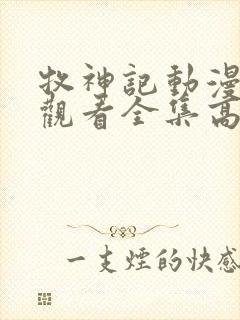 牧神記動漫
觀看全集高
一支煙的快感